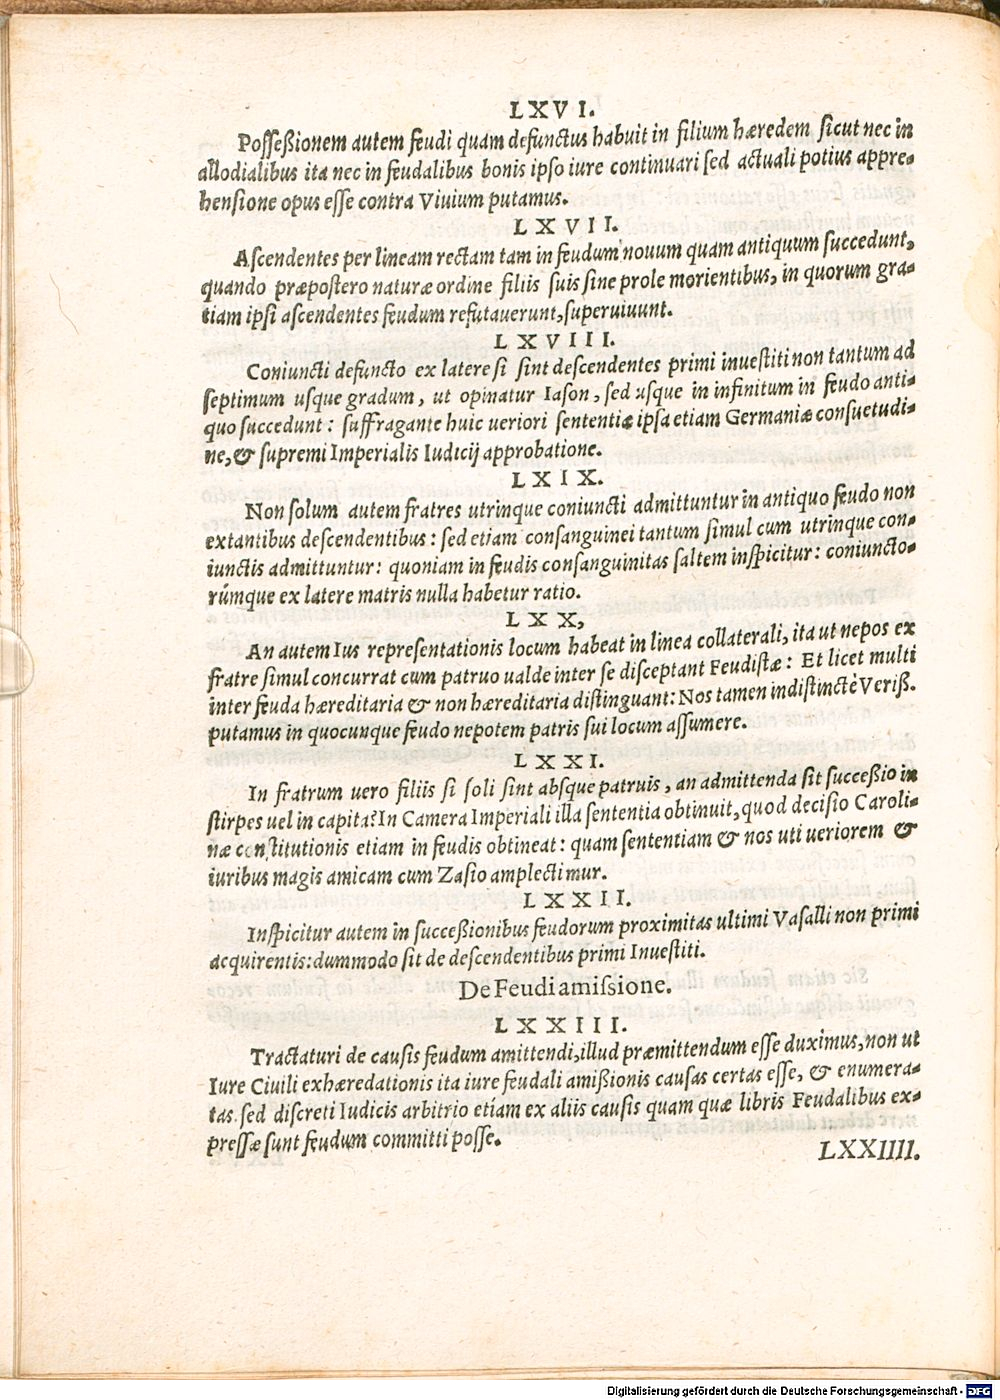 LXVI.
Posseßionem autem feudi quam defunctus habuit in filium hæredem sicut nec in
allodialibus ita nec in feudalibus bonis ipso iure continuari sed actuali potius appre-
hensione opus esse contra Viuium putamus.
LXVII.
Ascendentes per lineam rectam tam in feudum nouum quam antiquum succedunt,
quando præpostero naturæ ordine filiis suis sine prole morientibus, in quorum gra-
tiam ipsi ascendentes feudum refutauerunt, superuiuunt.
LXVIII.
Coniuncti defuncto ex latere si sint descendentes primi inuestiti non tantum ad
septimum usque gradum, ut opinatur Iason, sed usque in infinitum in feudo anti-
quo succedunt: suffragante huic ueriori sententiæ ipsa etiam Germaniæ consuetudi-
ne, & supremi Imperialis Iudicij approbatione.
LXIX.
Non solum autem fratres utrinque coniuncti admittuntur in antiquo feudo non
extantibus descendentibus: sed etiam consanguinei tantum simul cum utrinque con-
iunctis admittuntur: quoniam in feudis consanguinitas saltem inspicitur: coniuncto-
rúmque ex latere matris nulla habetur ratio.
LXX,
An autem Ius representationis locum habeat in linea collaterali, ita ut nepos ex
fratre simul concurrat cum patruo ualde inter se disceptant Feudistæ: Et licet multi
inter feuda hæreditaria & non hæreditaria distinguant: Nos tamen indistinctè Veriß.
putamus in quocunque feudo nepotem patris sui locum assumere.
LXXI.
In fratrum uero filiis si soli sint absque patruis, an admittenda sit succeßio in
stirpes uel in capita? In Camera Imperiali illa sententia obtinuit, quod decisio Caroli-
næ constitutionis etiam in feudis obtineat: quam sententiam & nos uti ueriorem &
iuribus magis amicam cum Zasio amplectimur.
LXXII.
Inspicitur autem in succeßionibus feudorum proximitas ultimi Vasalli non primi
acquirentis: dummodo sit de descendentibus primi Inuestiti.
De Feudi amissione.
LXXIII.
Tractaturi de causis feudum amittendi, illud præmittendum esse duximus, non ut
Iure Ciuili exhæredationis ita iure feudali amißionis causas certas esse, & enumera-
tas. sed discreti Iudicis arbitrio etiam ex aliis causis quam quæ libris Feudalibus ex-
pressæ sunt feudum committi posse.
LXXIIII.
Digitalisierung gefördert durch die Deutsche Forschungsgemeinschaft - DFG